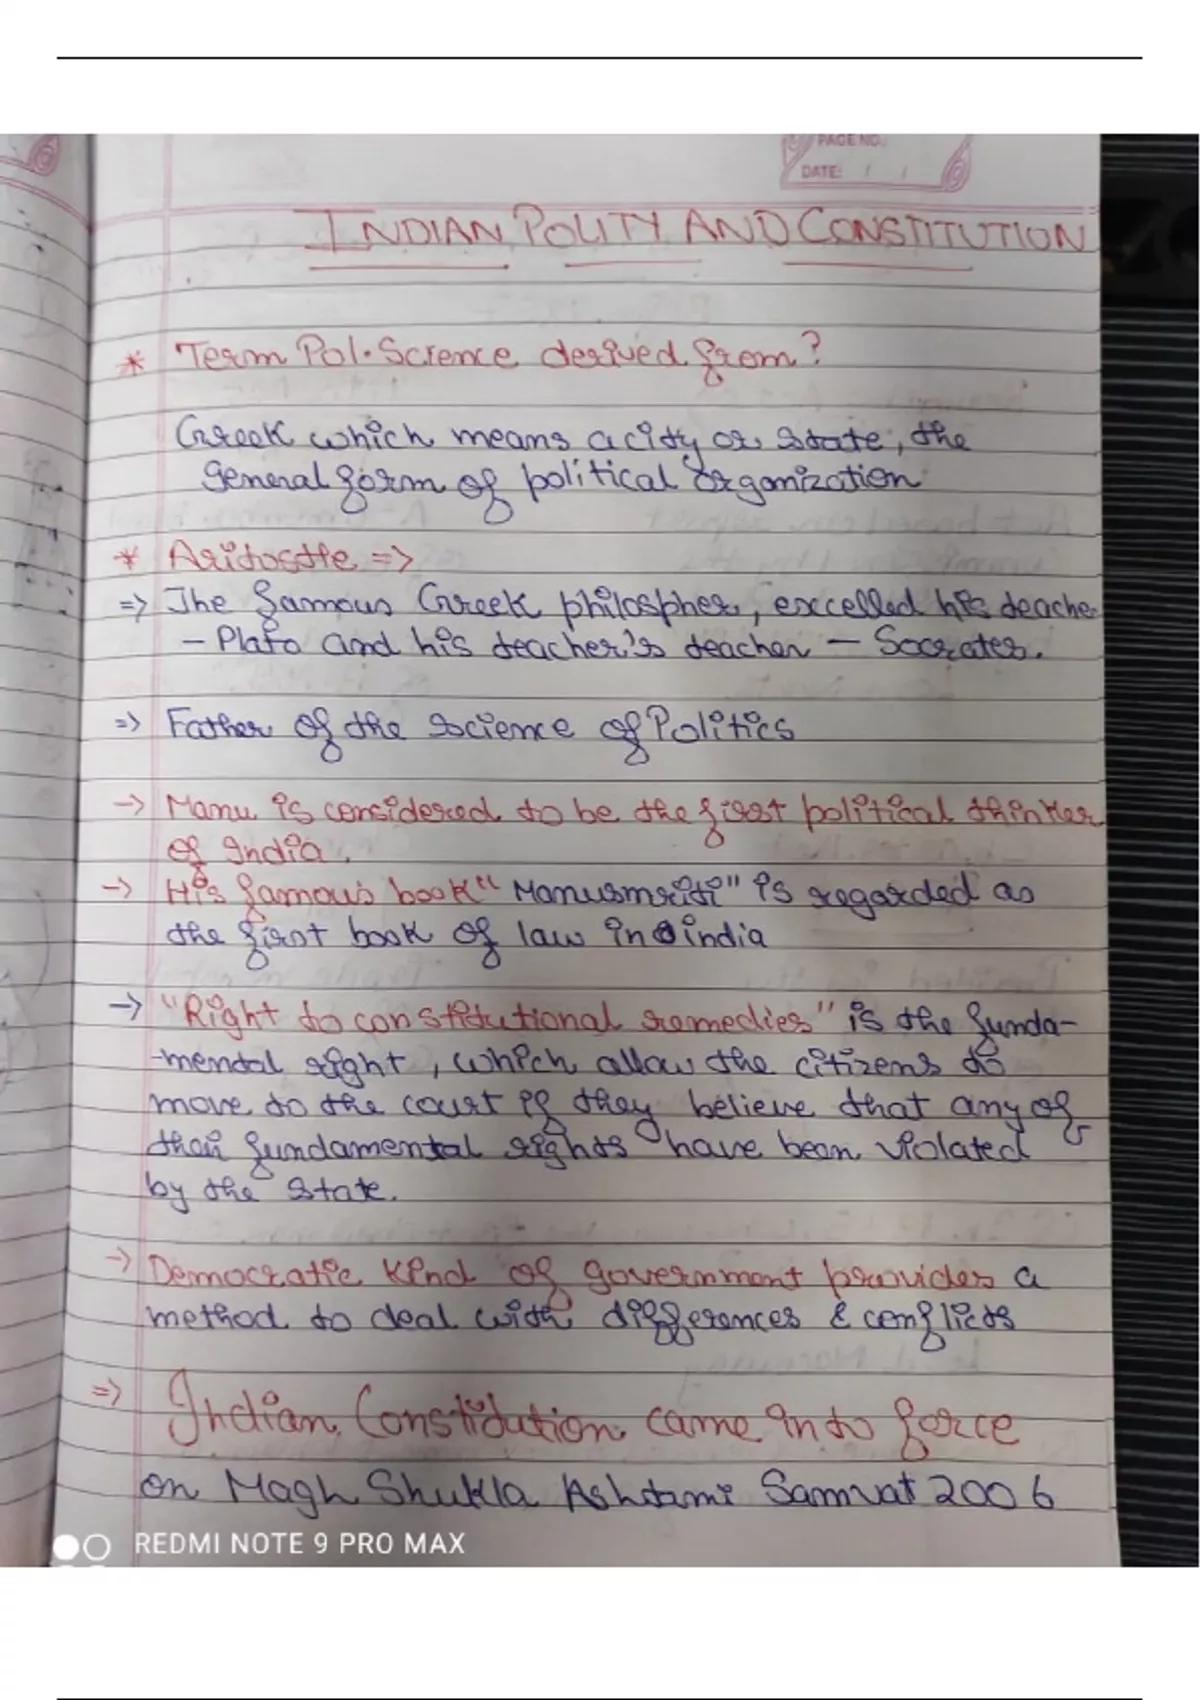 PAGE NO.
DATE: / /
INDIAN POLITY AND CONSTITUTION
* Term Pol. Science derived from?
Greek which means a city or state, the
general form of political organization
* Aristostle =>
=> The famous Greek philospher, excelled his teacher
- Plato and his teacher's teacher - Socrates.
=> Father of the science of Politics
-> Manu is considered to be the first political thinker
of India.
-> His famous book "Manusmriti" is regarded as
the first book of law in india
-> "Right to constitutional remedies" is the funda-
-mental right, which allow the citizens to
move to the court if they believe that any of
their fundamental rights have been violated
by the state.
-> Democratic kind of government provides a
method to deal with differences & conflicts
=> Indian Constitution came into force
on Magh Shukla Ashtami Samvat 2006
REDMI NOTE 9 PRO MAX